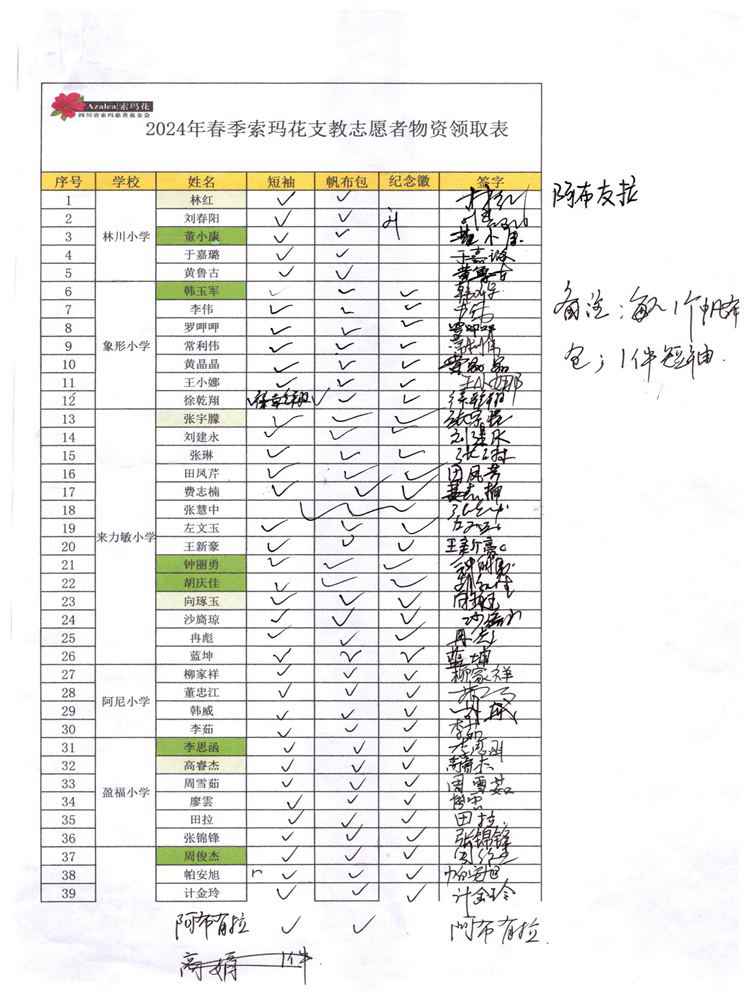 Azalea|索玛花
四川省索玛慈善基金会
2024年春季索玛花支教志愿者物资领取表
序号 学校 姓名 短袖 帆布包 纪念徽 签字
林川小学
1 林红 ✓ ✓
阿布友拉
2 刘春阳 ✓ ✓
3 董小康 ✓ ✓ 董小康
4 于嘉璐 ✓ ✓ 于嘉璐
5 黄鲁古 ✓ ✓ 黄鲁古
象形小学
6 韩玉军 ✓ ✓ ✓
备注：每人1个帆布
7 李伟 ✓ ✓ ✓ 李伟
8 罗呷呷 ✓ ✓ ✓ 罗呷呷
9 常利伟 ✓ ✓ ✓
包；1件短袖.
10 黄晶晶 ✓ ✓ ✓ 黄晶晶
11 王小娜 ✓ ✓ ✓ 王小娜
12 徐乾翔 ✓ ✓ ✓ 徐乾翔
来力敏小学
13 张宇朦 ✓ ✓ ✓
14 刘建永 ✓ ✓ ✓ 刘建永
15 张琳 ✓ ✓ ✓ 张琳
16 田凤芹 ✓ ✓ ✓ 田凤芹
17 费志楠 ✓ ✓ ✓ 费志楠
18 张慧中 ✓ ✓ ✓
19 左文玉 ✓ ✓ ✓ 左文玉
20 王新豪 ✓ ✓ ✓ 王新豪
21 钟丽勇 ✓ ✓ ✓ 钟丽勇
22 胡庆佳 ✓ ✓ ✓
23 向琢玉 ✓ ✓ ✓ 向琢玉
24 沙旖琼 ✓ ✓ ✓
25 冉彪 ✓ ✓ ✓ 冉彪
26 蓝坤 ✓ ✓ ✓ 蓝坤
阿尼小学
27 柳家祥 ✓ ✓ ✓ 柳家祥
28 董忠江 ✓ ✓ ✓
29 韩威 ✓ ✓ ✓
30 李茹 ✓ ✓ ✓ 李茹
盈福小学
31 李思函 ✓ ✓ ✓ 李思函
32 高睿杰 ✓ ✓ ✓ 高睿杰
33 周雪茹 ✓ ✓ ✓ 周雪茹
34 廖雲 ✓ ✓ ✓
35 田拉 ✓ ✓ ✓ 田拉.
36 张锦锋 ✓ ✓ ✓ 张锦锋
37 周俊杰 ✓ ✓ ✓ 周俊杰
38 帕安旭 ✓ ✓ ✓ 帕安旭
39 计金玲 ✓ ✓ ✓ 计金玲
阿布有拉 ✓ ✓ 阿布有拉.
高娟 1件.